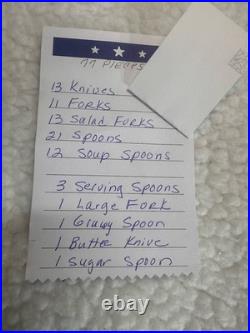 77 PIECES
13 Knives
11 Forks
13 Salad Forks
21 Spoons
12 Soup Spoons
3 Serving Spoons
1 Large Fork
1 Gravy Spoon
1 Butter Knive
1 Sugar Spoon